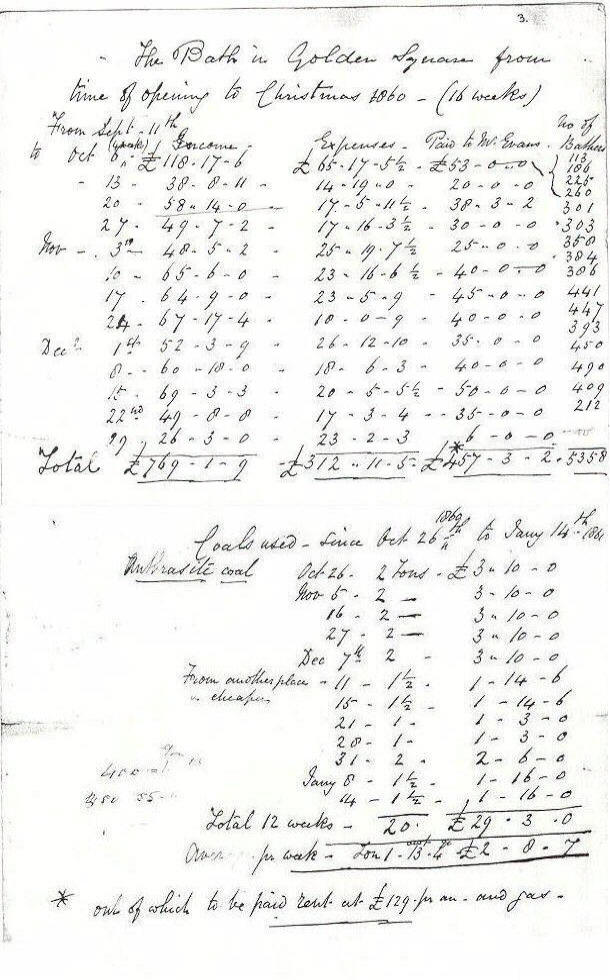 3.
The Bath in Golden Square from
time of opening to Christmas 1860 - (16 weeks)
From Sept - 11th
(4 weeks) Income Expenses - Paid to Mr. Evans. No of Bathers
to Oct 6 - £118-17-6 £65-17-5½ - £53-0-0 113
186
" 13 - 38-8-11 - 14-19-0 - 20-0-0 225
260
20 - 58-14-0 - 17-5-11½ - 38-3-2 301
27 - 49-7-2 - 17-16-3½ - 30-0-0 303
Nov - 3rd 48-5-2 - 25-19-7½ 25-0-0 358
384
10 - 65-6-0 - 23-16-6½ - 40-0-0 386
17 - 64-9-0 - 23-5-9 - 45-0-0 441
24 - 67-17-4 - 18-0-9 - 40-0-0 447
393
Decr 1st 52-3-9 - 26-12-10 - 35-0-0 450
8 - 60-18-0 - 18-6-3 - 40-0-0 490
15 - 69-3-3 - 20-5-5½ - 50-0-0 409
22nd 49-8-8 - 17-3-4 - 35-0-0 212
29 26-3-0 - 23-2-3 6-0-0
Total £769-1-9 - £312-11-5 - £*457-3-2 - 5358
Coals used - since Oct 26th 1860 to Jany 14th 1861
Anthrasite coal Oct 26 - 2 Tons - £3-10-0
Nov 5 - 2 — 3-10-0
16 - 2 — 3-10-0
27 - 2 — 3-10-0
Dec 7th 2 - 3-10-0
From another place - 11 - 1½ - 1-14-6
" cheaper 15 - 1½ - 1-14-6
21 - 1 - 1-3-0
28 - 1 - 1-3-0
31 - 2 - 2-6-0
Jany 8 - 1½ - 1-16-0
14 - 1½ - 1-16-0
Total 12 weeks - 20 - £29-3-0
pr week - Ton 1-13-4 - £2-8-7
* out of which to be paid rent at £129 pr an - and gas -